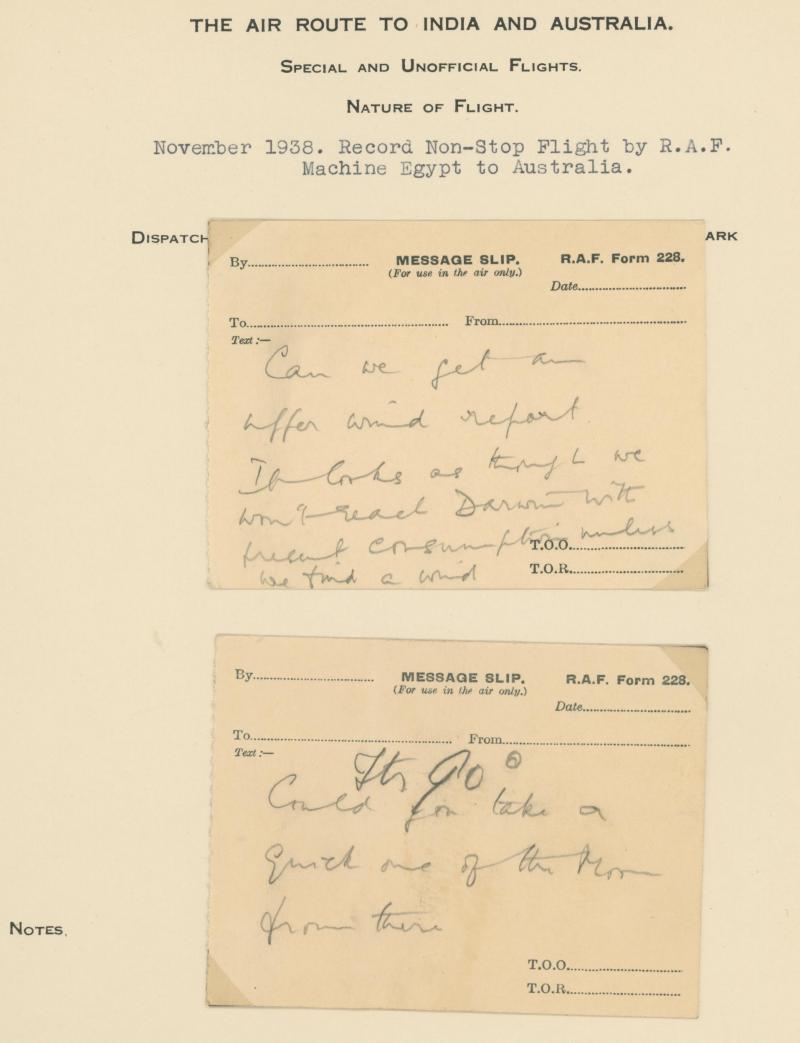 THE AIR ROUTE TO INDIA AND AUSTRALIA.
SPECIAL AND UNOFFICIAL FLIGHTS.
NATURE OF FLIGHT.
November 1938. Record Non-Stop Flight by R.A.F.
Machine Egypt to Australia.
DISPATCH ARK
By MESSAGE SLIP. R.A.F. Form 228.
(For use in the air only.)
Date
To From
Text :—
Can we get an
upper wind report.
It looks as though we
won't reach Darwin with
present consumption unless
T.O.O.
we find a wind
T.O.R.
By MESSAGE SLIP. R.A.F. Form 228.
(For use in the air only.)
Date
To From
Text :—
Its 90°
Could you take a
Quick one of the Moon
from there
T.O.O.
T.O.R.
NOTES.